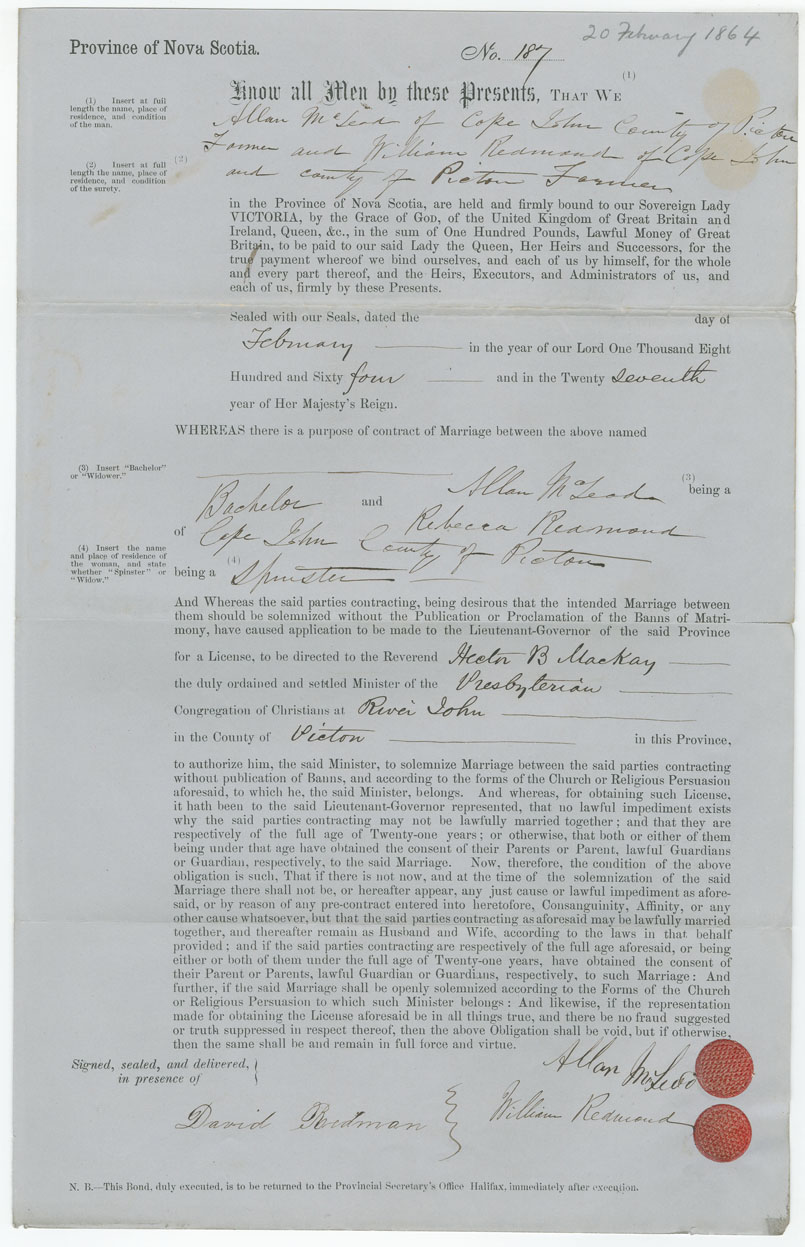 20 February 1864
Province of Nova Scotia.
No. 187
(1)
Know all Men by these Presents, THAT WE
(1) Insert at full
length the name, place of
residence, and condition
of the man.
Allan McLeod of Cape John County of Pictou
(2)
Farmer and William Redmond of Cape John
and county of Pictou Farmer
(2) Insert at full
length the name, place of
residence, and condition
of the surety.
in the Province of Nova Scotia, are held and firmly bound to our Sovereign Lady
VICTORIA, by the Grace of God, of the United Kingdom of Great Britain and
Ireland, Queen, &c., in the sum of One Hundred Pounds, Lawful Money of Great
Britain, to be paid to our said Lady the Queen, Her Heirs and Successors, for the
true payment whereof we bind ourselves, and each of us by himself, for the whole
and every part thereof, and the Heirs, Executors, and Administrators of us, and
each of us, firmly by these Presents.
Sealed with our Seals, dated the day of
February in the year of our Lord One Thousand Eight
Hundred and Sixty four and in the Twenty seventh
year of Her Majesty's Reign.
WHEREAS there is a purpose of contract of Marriage between the above named
(3) Insert "Bachelor"
or "Widower."
Allan McLeod (3) being a
Bachelor and Rebecca Redmond
of Cape John County of Pictou
(4) Insert the name
and place of residence of
the woman, and state
whether "Spinster" or
"Widow."
(4)
being a Spinster
And Whereas the said parties contracting, being desirous that the intended Marriage between
them should be solemnized without the Publication or Proclamation of the Banns of Matri-
mony, have caused application to be made to the Lieutenant-Governor of the said Province
for a License, to be directed to the Reverend Hector B MacKay
the duly ordained and settled Minister of the Presbyterian
Congregation of Christians at River John
in the County of Pictou in this Province,
to authorize him, the said Minister, to solemnize Marriage between the said parties contracting
without publication of Banns, and according to the forms of the Church or Religious Persuasion
aforesaid, to which he, the said Minister, belongs. And whereas, for obtaining such License,
it hath been to the said Lieutenant-Governor represented, that no lawful impediment exists
why the said parties contracting may not be lawfully married together; and that they are
respectively of the full age of Twenty-one years; or otherwise, that both or either of them
being under that age have obtained the consent of their Parents or Parent, lawful Guardians
or Guardian, respectively, to the said Marriage. Now, therefore, the condition of the above
obligation is such, That if there is not now, and at the time of the solemnization of the said
Marriage there shall not be, or hereafter appear, any just cause or lawful impediment as afore-
said, or by reason of any pre-contract entered into heretofore, Consanguinity, Affinity, or any
other cause whatsoever, but that the said parties contracting as aforesaid may be lawfully married
together, and thereafter remain as Husband and Wife, according to the laws in that behalf
provided; and if the said parties contracting are respectively of the full age aforesaid, or being
either or both of them under the full age of Twenty-one years, have obtained the consent of
their Parent or Parents, lawful Guardian or Guardians, respectively, to such Marriage: And
further, if the said Marriage shall be openly solemnized according to the Forms of the Church
or Religious Persuasion to which such Minister belongs: And likewise, if the representation
made for obtaining the License aforesaid be in all things true, and there be no fraud suggested
or truth suppressed in respect thereof, then the above Obligation shall be void, but if otherwise,
then the same shall be and remain in full force and virtue.
Signed, sealed, and delivered,
in presence of
Allan McLeod
David Redman
William Redmond
N. B.—This Bond, duly executed, is to be returned to the Provincial Secretary's Office Halifax, immediately after execution.